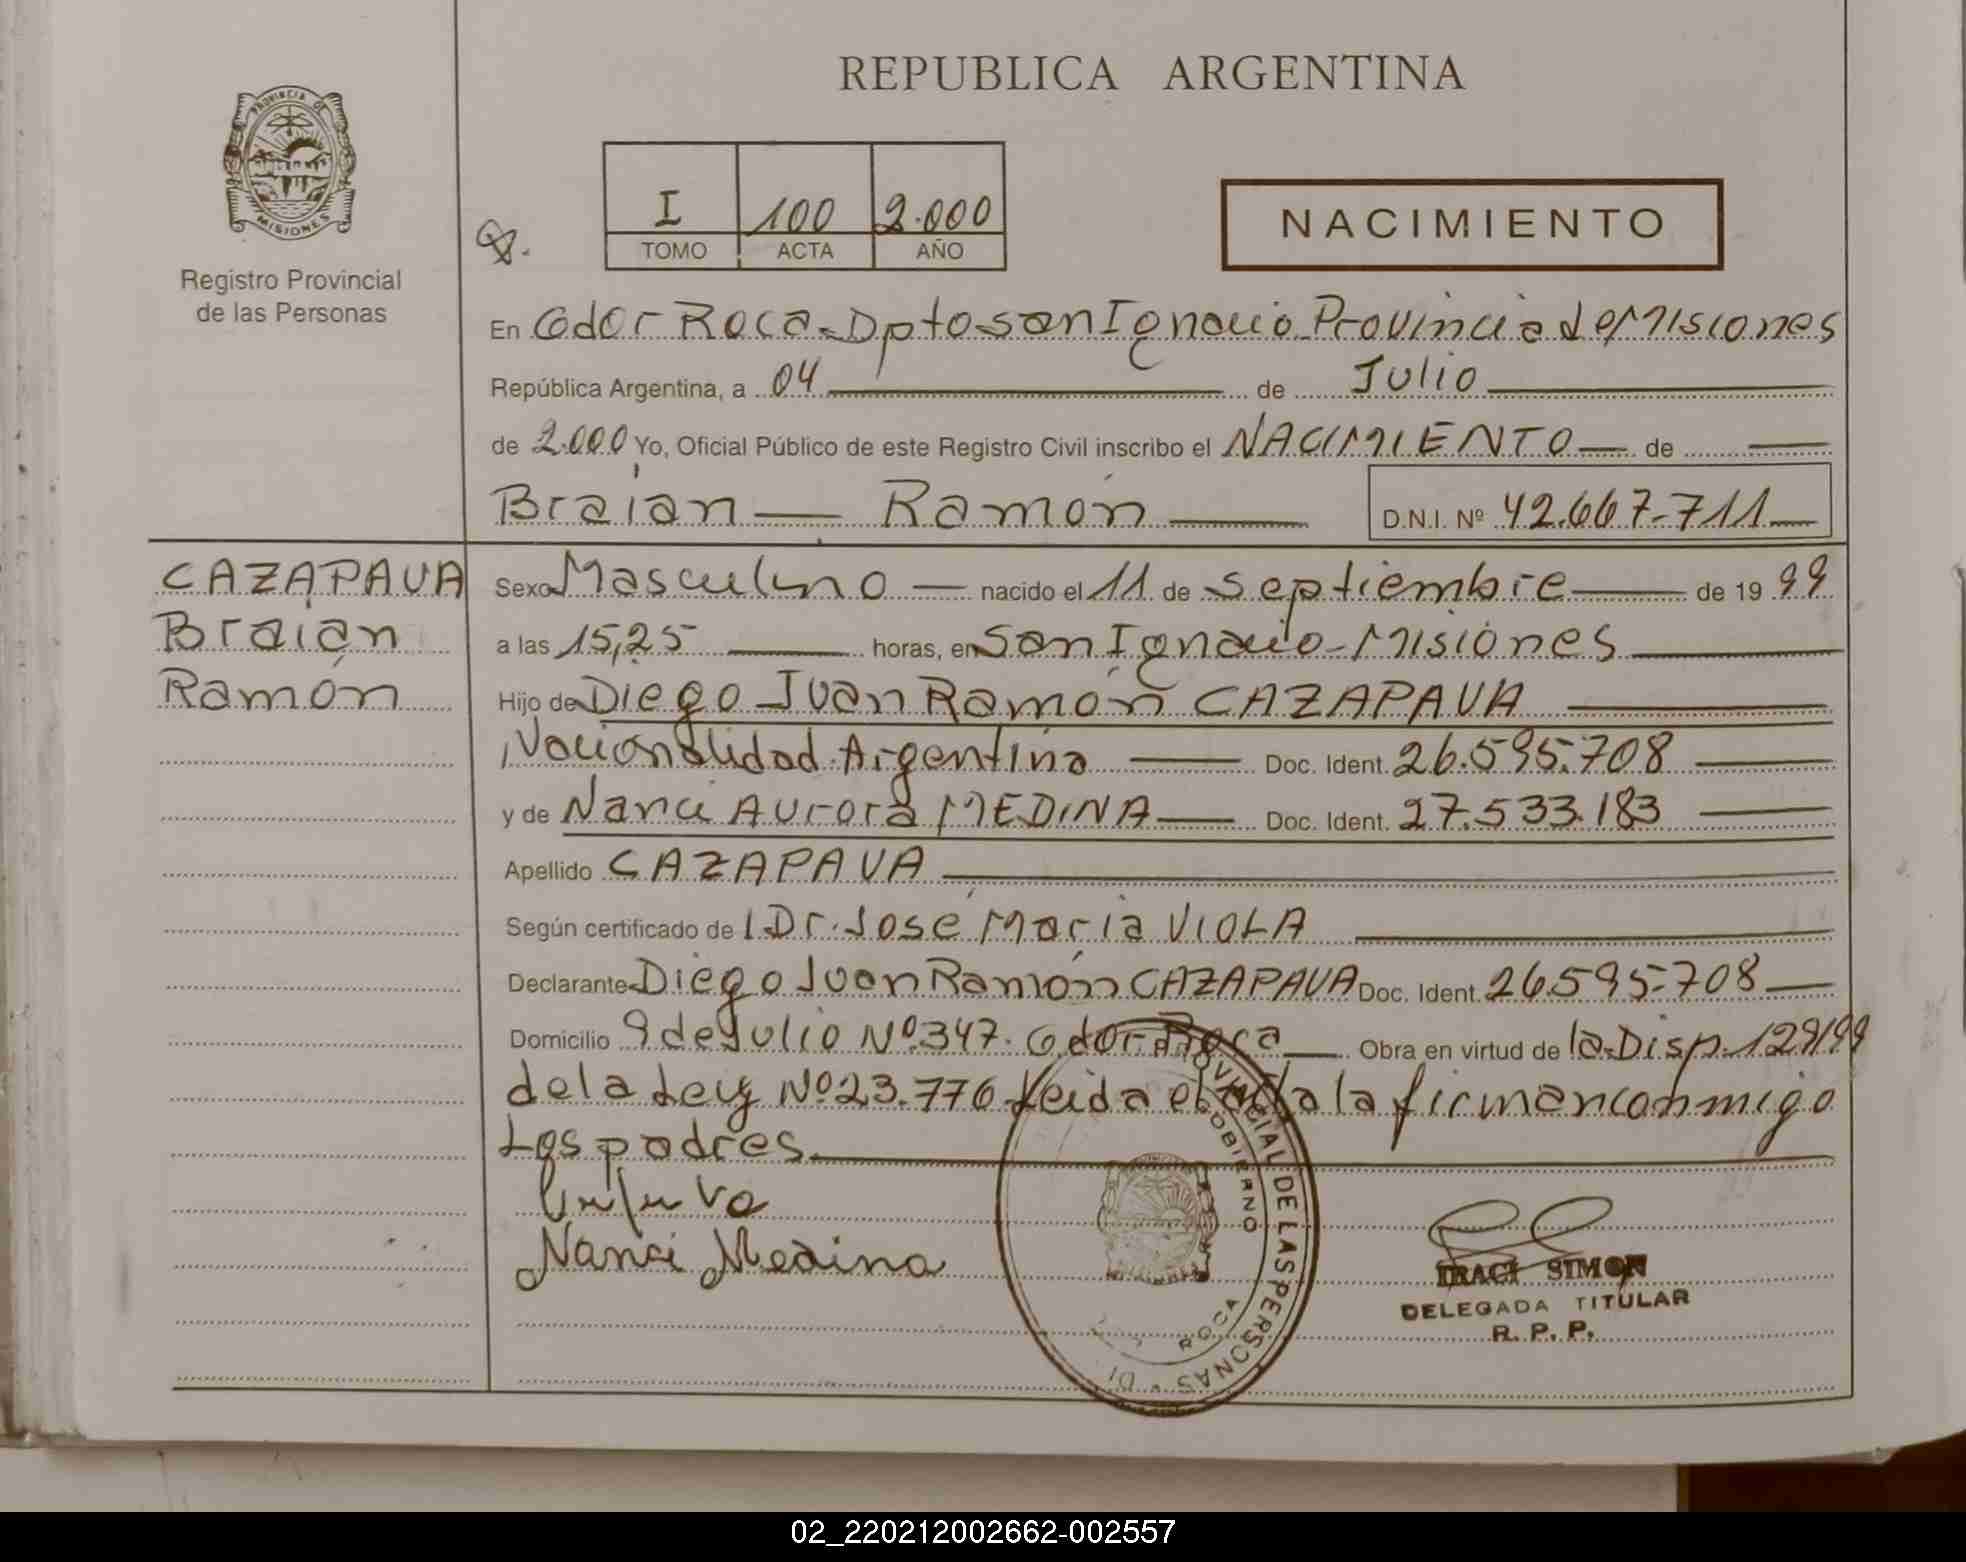 REPUBLICA ARGENTINA
PROVINCIA DE
MISIONES
Registro Provincial
de las Personas
I 100 2.000
TOMO ACTA AÑO
NACIMIENTO
En Gdor Roca - Dpto san Ignacio - Provincia de Misiones
República Argentina, a 04 de Julio
de 2.000 Yo, Oficial Público de este Registro Civil inscribo el NACIMIENTO de
Braian Ramón
D.N.I. Nº 42.667.711
CAZAPAVA
Braian
Ramón
Sexo Masculino nacido el 11 de septiembre de 19 99
a las 15,25 horas, en San Ignacio - Misiones
Hijo de Diego Juan Ramón CAZAPAVA
Nacionalidad Argentina Doc. Ident. 26.595.708
y de Nanci Aurora MEDINA Doc. Ident. 27.533.183
Apellido CAZAPAVA
Según certificado de Dr. José María VIOLA
Declarante Diego Juan Ramón CAZAPAVA Doc. Ident. 26595.708
Domicilio 9 de Julio Nº 347. Gdor Roca Obra en virtud de la Disp. 129/99
de la Ley Nº 23.776 Leida el acta la firman conmigo
Los padres
Nanci Medina
PROVINCIAL DE LAS PERSONAS
GOBIERNO
ROCA
IRACI SIMON
DELEGADA TITULAR
R. P. P.
02_220212002662-002557